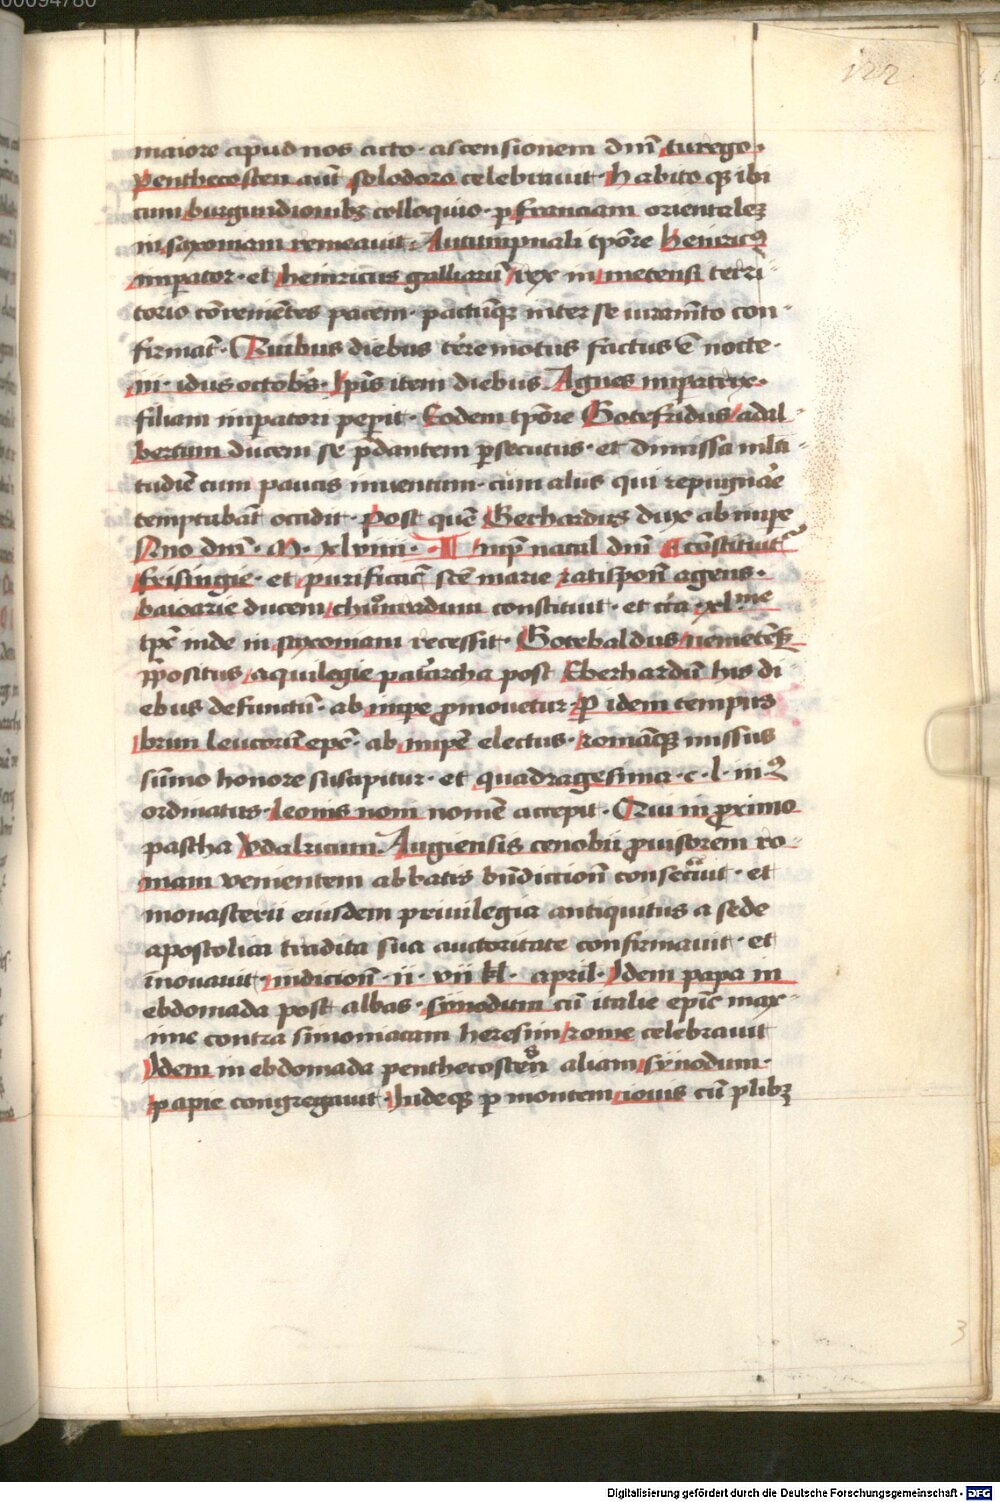 00094780
122
maiore apud nos acto · ascensionem dnī turego ·
Penthecosten aūt solodoro celebrauit · Habito qꝫ ibi
cum burgundionibꝫ colloquio · ꝑ franciam orientaleꝫ
in saxoniam remeauit · Autumpnali tpōre heinricꝰ
imꝑator · et heinricus galliarū rex in metensi terri
torio cōuenientes pacem · pactūqꝫ inter se iuramēto con
firmāt · Quibus diebus t're motus factus ē nocte ·
iii · idus octobꝭ · Ipīs item diebus Agnes imꝑatrix ·
filiam imꝑatori peꝑit · Eodem tpōre Gotefridus adal
bertum ducem se p̄dantem ꝑsecutus · et dimissa mlti
tudiē cum paucis inuentum · cum aliis qui repugnāe
temptabāt occidit · Post quē Gerhardus dux ab imꝑe
Nno dnī · M · xlviiii · Imꝑ natal dnī constituit
frisingie · et purificac̄ scē marie ratispon̄ agens ·
baioarie ducem chuͦnradum constituit · et c̄ca xl me
tpꝰ inde in saxoniam recessit · Gotebaldus nemetēs
p̄positus aquilegie pat'archa post Eberhardū his di
ebus defunctū · ab imꝑe ꝓmouetur · P idem tempus
brun leucorū epc̄ · ab imꝑe electus · romāqꝫ missus
sūmo honore suscipitur · et quadragesima · c · l · iiiꝰ
ordinatus · Leonis noni nomē accepit · Qui in ꝓximo
pascha Vdalricum Augiensis cenobii ꝓuisorem ro
mam venientem abbatis bn̄dictiōn consecͣuit · et
monasterii eiusdem priuilegia antiquitus a sede
apostolica tradita sua auctoritate confirmauit · et
īnouauit · indiction̄ · ii · vii kl · april · Idem papa in
ebdomada post albas · sinodum cū italie epīs max
ime contra simoniacam heresim rome celebrauit
Idem in ebdomada penthecosten aliam synodum ·
papie congregauit · Indeqꝫ ꝑ montem iouis cū plibꝫ
3
Digitalisierung gefördert durch die Deutsche Forschungsgemeinschaft - DFG